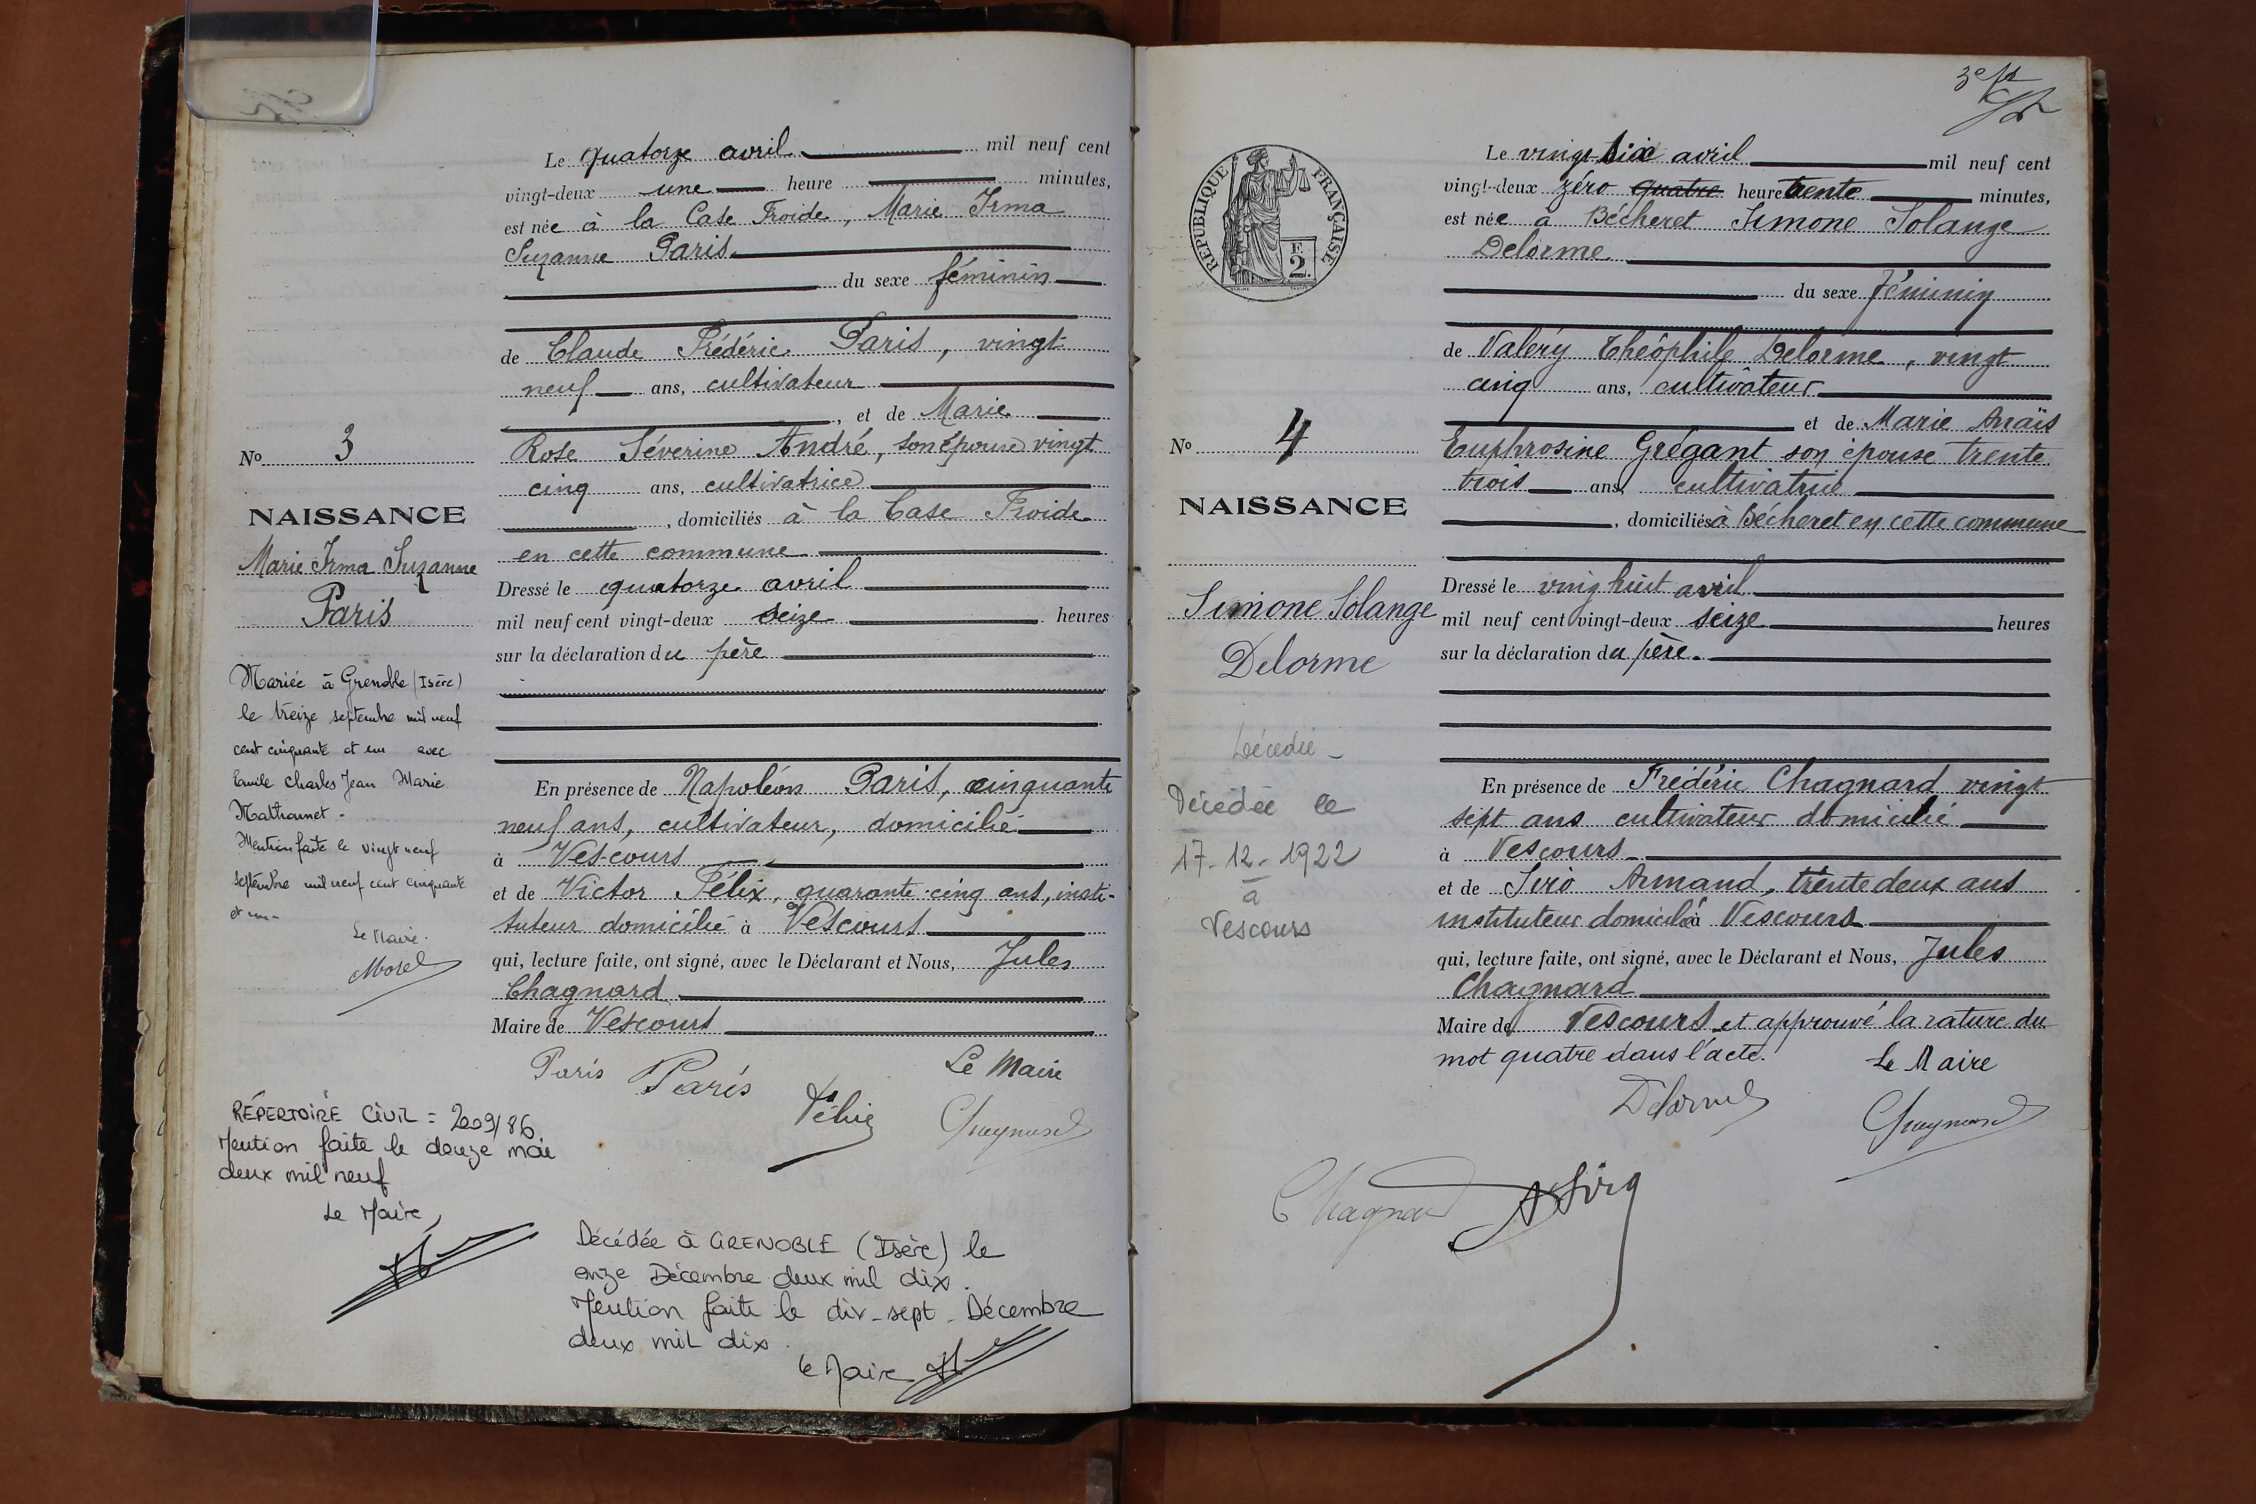 Le quatorze avril mil neuf cent
vingt-deux une heure minutes,
est née à la Case Froide, Marie Irma
Suzanne Paris.
du sexe féminin
de Claude Frédéric Paris, vingt
neuf ans, cultivateur
, et de Marie
Rose Séverine André, son épouse vingt
cinq ans, cultivatrice
, domiciliés à la Case Froide
en cette commune
Dressé le quatorze avril
mil neuf cent vingt-deux seize heures
sur la déclaration du père
En présence de Napoléon Paris, cinquante
neuf ans, cultivateur, domicilié
à Vescours
et de Victor Félix, quarante-cinq ans, insti-
tuteur domicilié à Vescours
qui, lecture faite, ont signé, avec le Déclarant et Nous, Jules
Chagnard
Maire de Vescours
Paris Paris Félix Le Maire
No 3
NAISSANCE
Marie Irma Suzanne
Paris
Mariée à Grenoble (Isère)
le treize septembre mil neuf
cent cinquante et un avec
Emile Charles Jean Marie
Mathonnet.
Mention faite le vingt neuf
septembre mil neuf cent cinquante
et un
Le Maire.
Morel
RÉPERTOIRE CIVIL = 2009/86
Mention faite le douze mai
deux mil neuf
Le Maire,
Décédée à GRENOBLE (Isère) le
onze Décembre deux mil dix.
Mention faite le dix-sept Décembre
deux mil dix.
Le Maire
RÉPUBLIQUE FRANÇAISE
F.
2.
Le vingt-six avril mil neuf cent
vingt-deux zéro quatre heure trente minutes,
est née à Bécheret Simone Solange
Delorme
du sexe féminin
de Valéry Théophile Delorme, vingt
cinq ans, cultivateur
et de Marie Anaïs
Euphrosine Grégant son épouse trente
trois ans, cultivatrice
, domiciliés à Bécheret en cette commune
Dressé le vingt huit avril
mil neuf cent vingt-deux seize heures
sur la déclaration du père.
En présence de Frédéric Chagnard vingt
sept ans cultivateur domicilié
à Vescours
et de Armand, trente deux ans
instituteur domicilié à Vescours
qui, lecture faite, ont signé, avec le Déclarant et Nous, Jules
Chagnard
Maire de Vescours et approuvé la rature du
mot quatre dans l'acte.
Le Maire
Delorme
Chagnard
No 4
NAISSANCE
Simone Solange
Delorme
Décédée
Décédée le
17-12-1922
à
Vescours